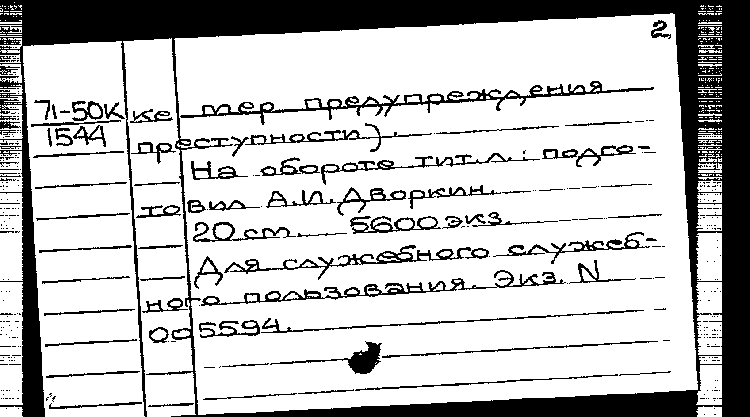 2
71-50К ке мер предупреждения
1544 преступности).
На обороте тит.л.: подго-
товил А.И.Дворкин.
20 см. 5600 экз.
Для служебного служеб-
ного пользования. Экз. N
005594.